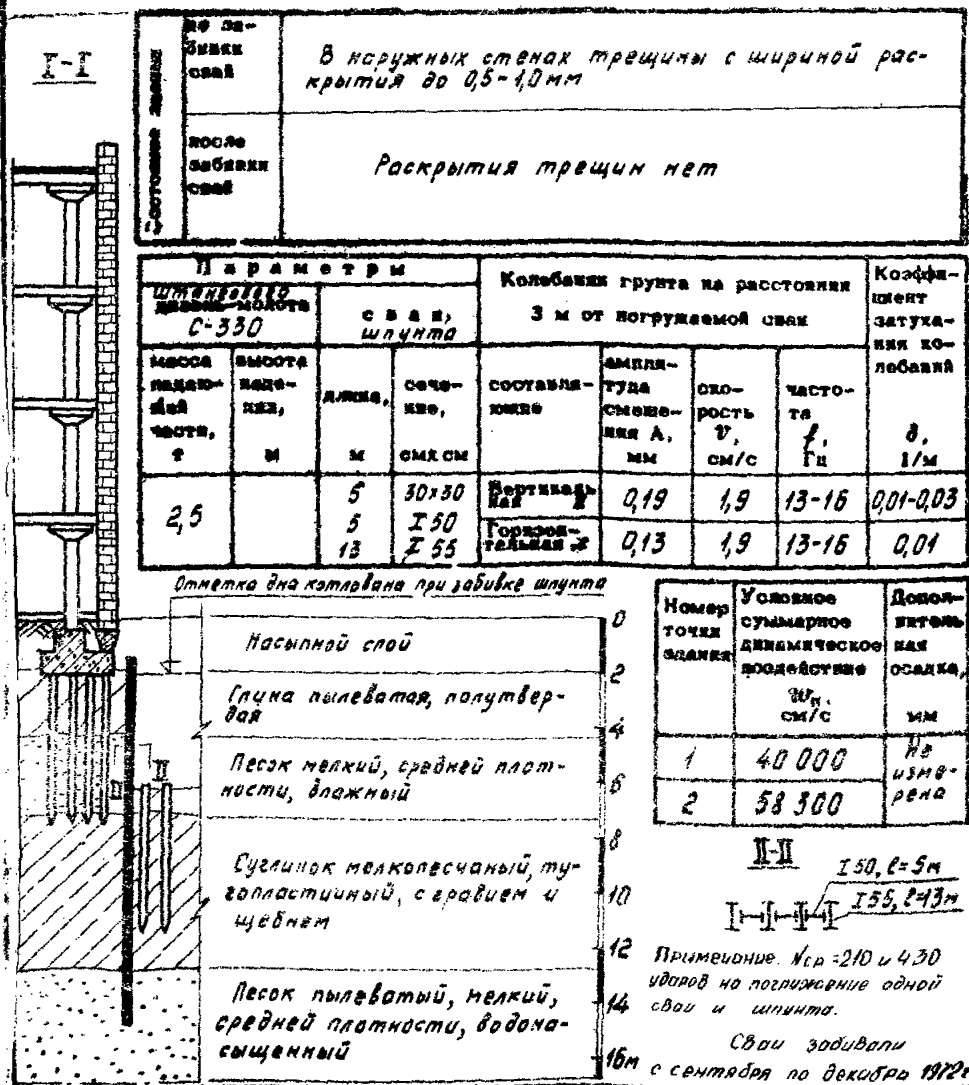 I-I
Состояние здания
до за-
бивки
свай
В наружных стенах трещины с шириной рас-
крытия до 0,5-1,0мм
после
забивки
свай
Раскрытия трещин нет
Параметры
штангового
дизель-молота
С-330
сваи,
шпунта
Колебания грунта на расстоянии
3 м от погружаемой сваи
Коэффи-
циент
затуха-
ния ко-
лебаний
δ,
1/м
масса
падаю-
щей
части,
т
высота
паде-
ния,
м
длина,
м
сече-
ние,
смхсм
составля-
ющие
ампли-
туда
смеще-
ния А,
мм
ско-
рость
v,
см/с
часто-
та
f,
Гц
2,5
5 30х30
5 I 50
13 I 55
Вертикаль-
ная Z 0,19 1,9 13-16 0,01-0,03
Горизон-
тальная X 0,13 1,9 13-16 0,01
Отметка дна котлована при забивке шпунта
Насыпной слой
Глина пылеватая, полутвер-
дая
Песок мелкий, средней плот-
ности, влажный
Суглинок мелкопесчаный, ту-
гопластичный, с гравием и
щебнем
Песок пылеватый, мелкий,
средней плотности, водона-
сыщенный
0
2
4
6
8
10
12
14
16м
II
II
Номер
точки
здания
Условное
суммарное
динамическое
воздействие
см/с
Допол-
нитель
ная
осадка,
мм
1 40 000
2 58 300
Не
изме-
рена
II-II
I 50, ℓ=5м
I 55, ℓ=13м
Примечание. Nср =210 и 430
ударов на погружение одной
сваи и шпунта.
Сваи забивали
с сентября по декабрь 1972г